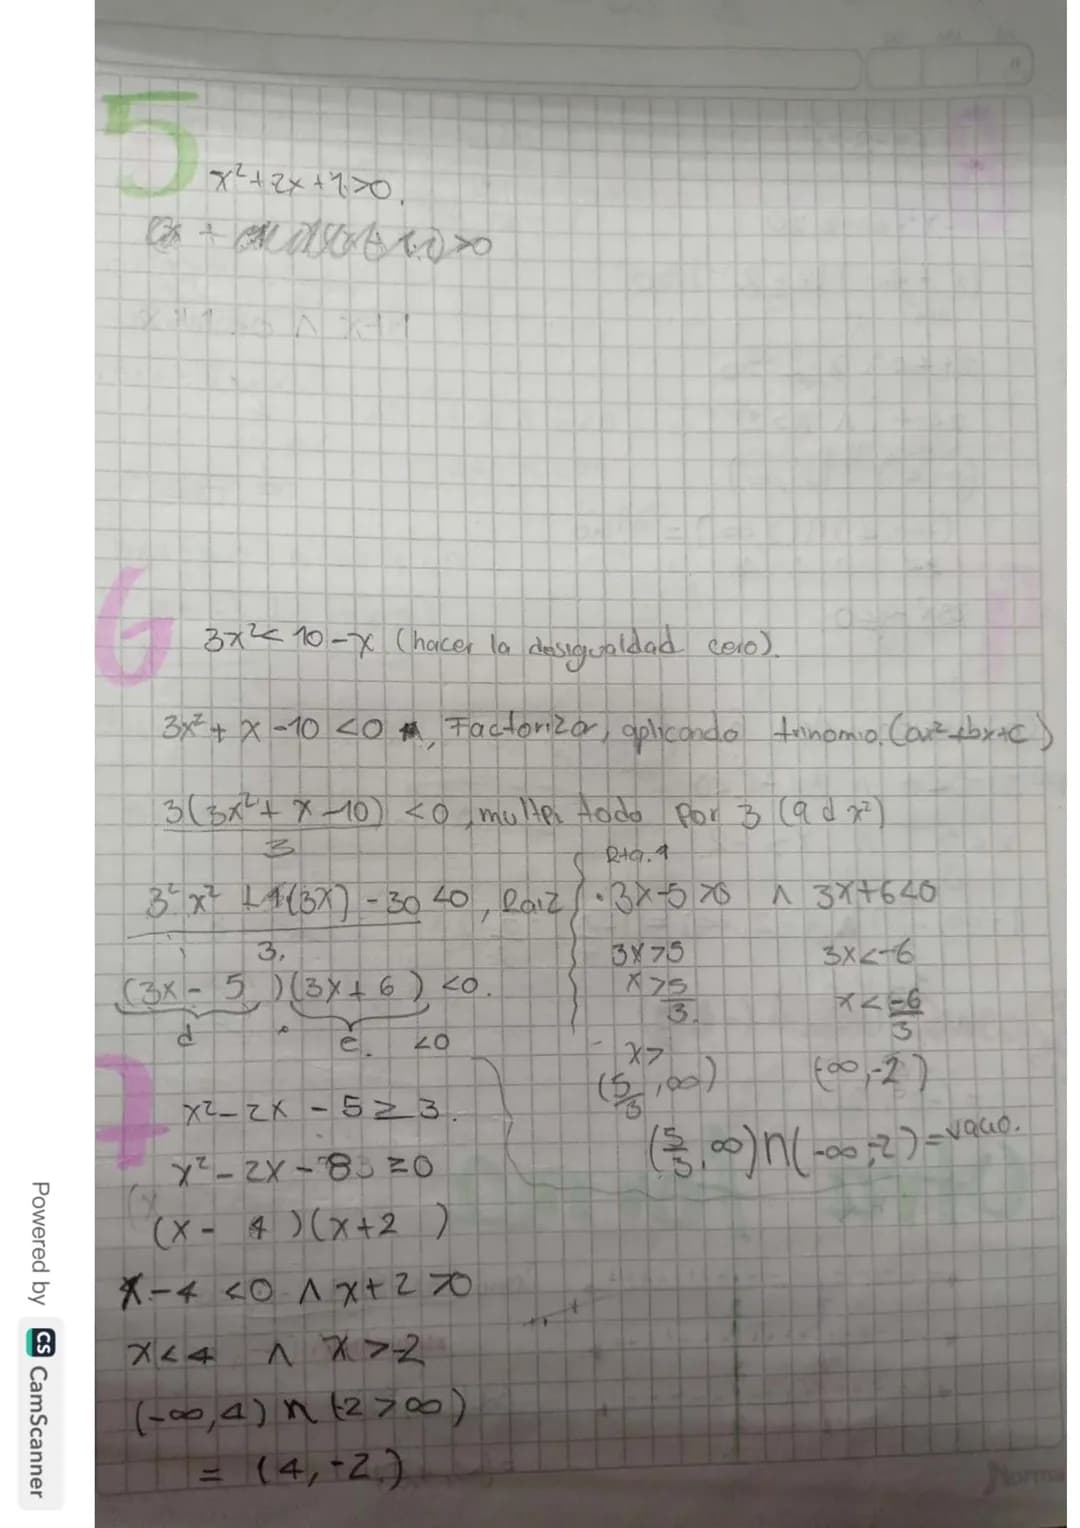 5
x²+2x+1>0.
>0
6
3x²< 10-x (hacer la desigualdad cero).
3x²+ x-10 <0 , Factorizar, aplicando trinomio. (ax²+bx+c)
3(3x²+ x-10) <0, multpi todo por 3 (a d x²)
3
Rta. 1
3² x² +1(3x) -30 <0, Raiz
3.
(3x- 5 )(3x+6) <0.
d . e. <0
· 3x-5>0 ∧ 3x+6<0
3x>5 3x<-6
x>5/3. x<-6/3
x>
(5/3,∞) (-∞,-2)
(5/3,∞)∩(-∞,-2)=vacio.
7
x²-2x -5≥3.
x²-2x-8≥0
(x- 4 )(x+2 )
x-4 <0 ∧ x+2>0
x<4 ∧ x>-2
(-∞,4) ∩ (-2>∞)
= (4,-2.)
Norma
Powered by CS CamScanner